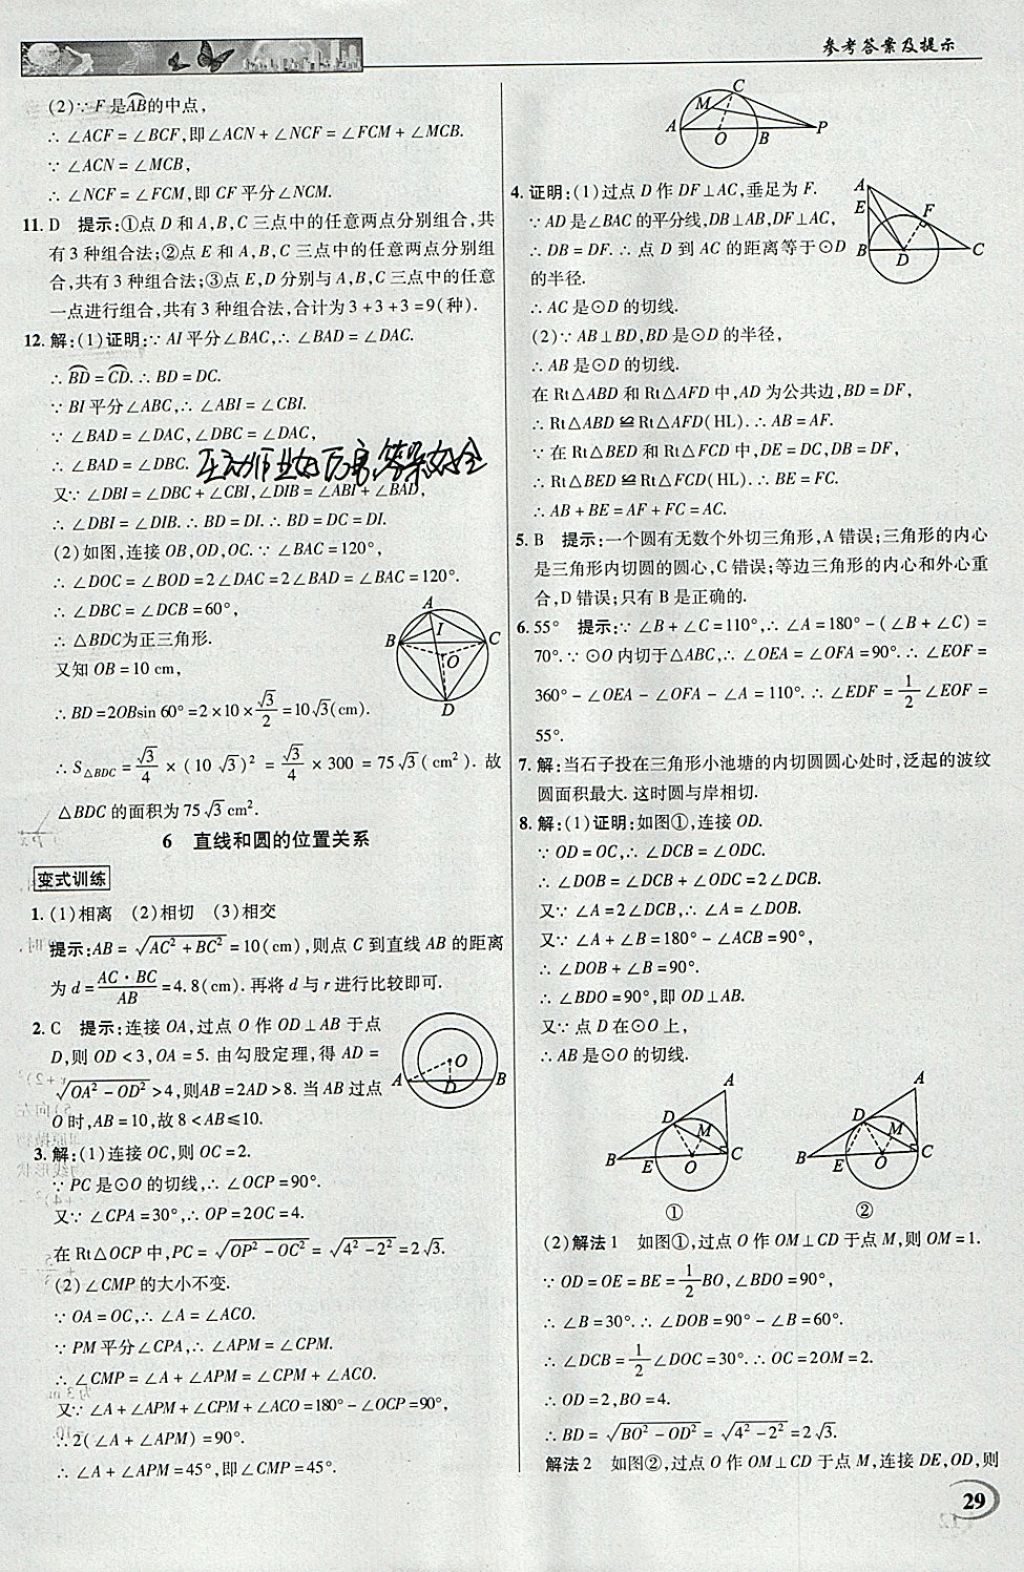 参考答案及提示
(2)∵ F 是AB的中点,
∴ ∠ACF = ∠BCF,即∠ACN + ∠NCF = ∠FCM + ∠MCB.
∵ ∠ACN = ∠MCB,
∴ ∠NCF = ∠FCM,即 CF 平分∠NCM.
11. D 提示:①点 D 和 A,B,C 三点中的任意两点分别组合,共
有 3 种组合法;②点 E 和 A,B,C 三点中的任意两点分别组
合,共有 3 种组合法;③点 E,D 分别与 A,B,C 三点中的任意
一点进行组合,共有 3 种组合法,合计为 3 + 3 + 3 = 9(种).
12. 解:(1)证明:∵ AI 平分∠BAC,∴ ∠BAD = ∠DAC.
∴ BD = CD. ∴ BD = DC.
∵ BI 平分∠ABC,∴ ∠ABI = ∠CBI.
∵ ∠BAD = ∠DAC,∠DBC = ∠DAC,
∴ ∠BAD = ∠DBC.
又∵ ∠DBI = ∠DBC + ∠CBI,∠DIB = ∠ABI + ∠BAD,
∴ ∠DBI = ∠DIB. ∴ BD = DI. ∴ BD = DC = DI.
(2)如图,连接 OB,OD,OC. ∵ ∠BAC = 120°,
∴ ∠DOC = ∠BOD = 2∠DAC = 2∠BAD = ∠BAC = 120°.
∴ ∠DBC = ∠DCB = 60°,
∴ △BDC为正三角形.
又知 OB = 10 cm,
∴ BD = 2OBsin 60° = 2 × 10 × √3/2 = 10√3(cm).
∴ S△BDC = √3/4 × (10√3)² = √3/4 × 300 = 75√3(cm²). 故
△BDC 的面积为 75√3 cm².
A
I
B
C
O
D
6 直线和圆的位置关系
变式训练
1. (1)相离 (2)相切 (3)相交
提示:AB = √(AC² + BC²) = 10(cm),则点 C 到直线 AB 的距离
为 d = AC·BC/AB = 4.8(cm). 再将 d 与 r 进行比较即可.
2. C 提示:连接 OA,过点 O 作 OD⊥AB 于点
D,则 OD < 3,OA = 5. 由勾股定理,得 AD =
√(OA² - OD²) > 4,则AB = 2AD > 8. 当 AB 过点
O 时,AB = 10,故 8 < AB ≤ 10.
O
A
D
B
3. 解:(1)连接 OC,则 OC = 2.
∵ PC 是⊙O 的切线,∴ ∠OCP = 90°.
又∵ ∠CPA = 30°,∴ OP = 2OC = 4.
在 Rt△OCP 中,PC = √(OP² - OC²) = √(4² - 2²) = 2√3.
(2)∠CMP 的大小不变.
∵ OA = OC,∴ ∠A = ∠ACO.
∵ PM 平分∠CPA,∴ ∠APM = ∠CPM.
∴ ∠CMP = ∠A + ∠APM = ∠CPM + ∠ACO.
又∵ ∠A + ∠APM + ∠CPM + ∠ACO = 180° - ∠OCP = 90°,
∴ 2(∠A + ∠APM) = 90°.
∴ ∠A + ∠APM = 45°,即∠CMP = 45°.
C
M
A
O
B
P
4. 证明:(1)过点 D 作 DF⊥AC,垂足为 F.
∵ AD 是∠BAC 的平分线,DB⊥AB,DF⊥AC,
∴ DB = DF. ∴ 点 D 到 AC 的距离等于⊙D
的半径.
∴ AC 是⊙D 的切线.
(2)∵ AB⊥BD,BD 是⊙D 的半径,
∴ AB 是⊙D 的切线.
在 Rt△ABD 和 Rt△AFD 中,AD 为公共边,BD = DF,
∴ Rt△ABD ≌ Rt△AFD(HL). ∴ AB = AF.
∵ 在 Rt△BED 和 Rt△FCD 中,DE = DC,DB = DF,
∴ Rt△BED ≌ Rt△FCD(HL). ∴ BE = FC.
∴ AB + BE = AF + FC = AC.
A
E
F
B
D
C
5. B 提示:一个圆有无数个外切三角形,A 错误;三角形的内心
是三角形内切圆的圆心,C 错误;等边三角形的内心和外心重
合,D 错误;只有 B 是正确的.
6. 55° 提示:∵ ∠B + ∠C = 110°,∴ ∠A = 180° - (∠B + ∠C) =
70°. ∵ ⊙O 内切于△ABC,∴ ∠OEA = ∠OFA = 90°. ∴ ∠EOF =
360° - ∠OEA - ∠OFA - ∠A = 110°. ∴ ∠EDF = 1/2 ∠EOF =
55°.
7. 解:当石子投在三角形小池塘的内切圆圆心处时,泛起的波纹
圆面积最大. 这时圆与岸相切.
8. 解:(1)证明:如图①,连接 OD.
∵ OD = OC,∴ ∠DCB = ∠ODC.
∴ ∠DOB = ∠DCB + ∠ODC = 2∠DCB.
又∵ ∠A = 2∠DCB,∴ ∠A = ∠DOB.
又∵ ∠A + ∠B = 180° - ∠ACB = 90°,
∴ ∠DOB + ∠B = 90°.
∴ ∠BDO = 90°,即 OD⊥AB.
又∵ 点 D 在⊙O 上,
∴ AB 是⊙O 的切线.
A
D
M
B
E
O
C
①
A
D
M
B
E
O
C
②
(2)解法 1 如图①,过点 O 作 OM⊥CD 于点 M,则 OM = 1.
∵ OD = OE = BE = 1/2 BO,∠BDO = 90°,
∴ ∠B = 30°. ∴ ∠DOB = 90° - ∠B = 60°.
∴ ∠DCB = 1/2 ∠DOC = 30°. ∴ OC = 2OM = 2.
∴ OD = 2,BO = 4.
∴ BD = √(BO² - OD²) = √(4² - 2²) = 2√3.
解法 2 如图②,过点 O 作 OM⊥CD 于点 M,连接 DE,OD,则
29